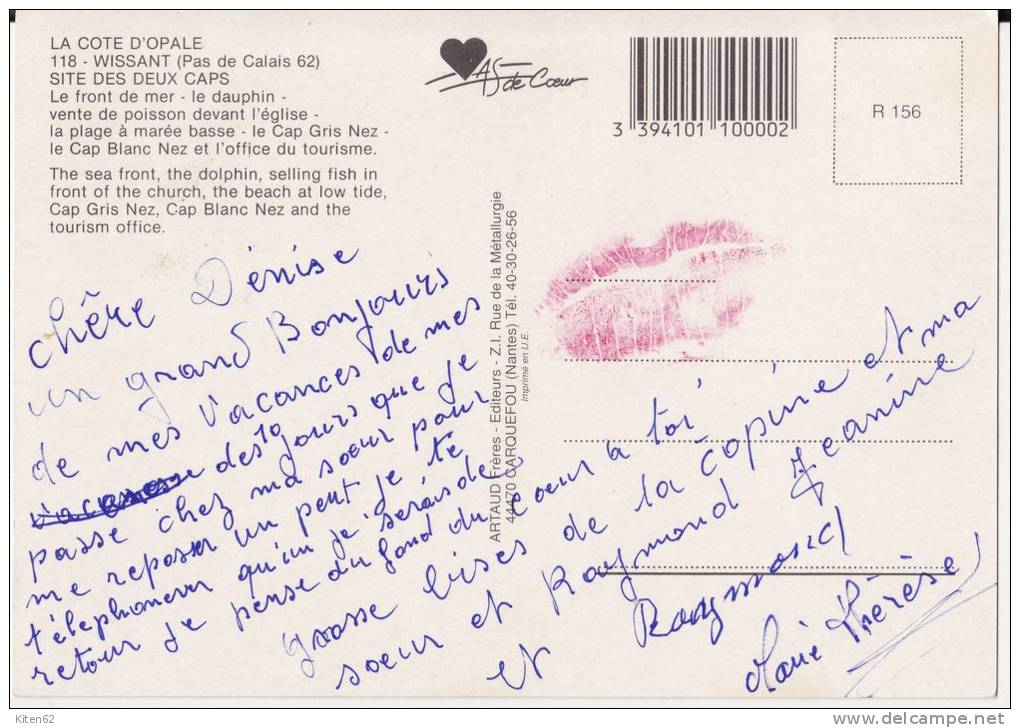 LA COTE D'OPALE
118 - WISSANT (Pas de Calais 62)
SITE DES DEUX CAPS
Le front de mer - le dauphin -
vente de poisson devant l'église -
la plage à marée basse - le Cap Gris Nez -
le Cap Blanc Nez et l'office du tourisme.
The sea front, the dolphin, selling fish in
front of the church, the beach at low tide,
Cap Gris Nez, Cap Blanc Nez and the
tourism office.
AS de Cœur
3 394101 100002
R 156
ARTAUD Frères - Editeurs - Z.I. Rue de la Métallurgie
44470 CARQUEFOU (Nantes) Tél. 40-30-26-56
Imprimé en U.E.
Chêre Dénise
un grand Bonjours
de mes vacances de mes
vacances des 10 jours que je
passe chez ma sœur pour
me reposer un peut je te
télephonerer qu'un je serais de
retour je pense du fond du cœur a toi
grosse bises de la copine et ma
soeur et Raymond Jeanine
et Raymond
Marie Thérèse
Kiten62
www.delcampe.net